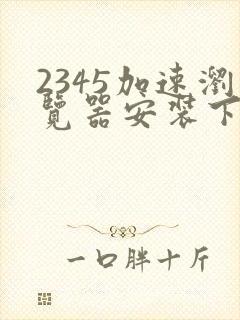 2345加速瀏
覽器安裝下
一口胖十斤